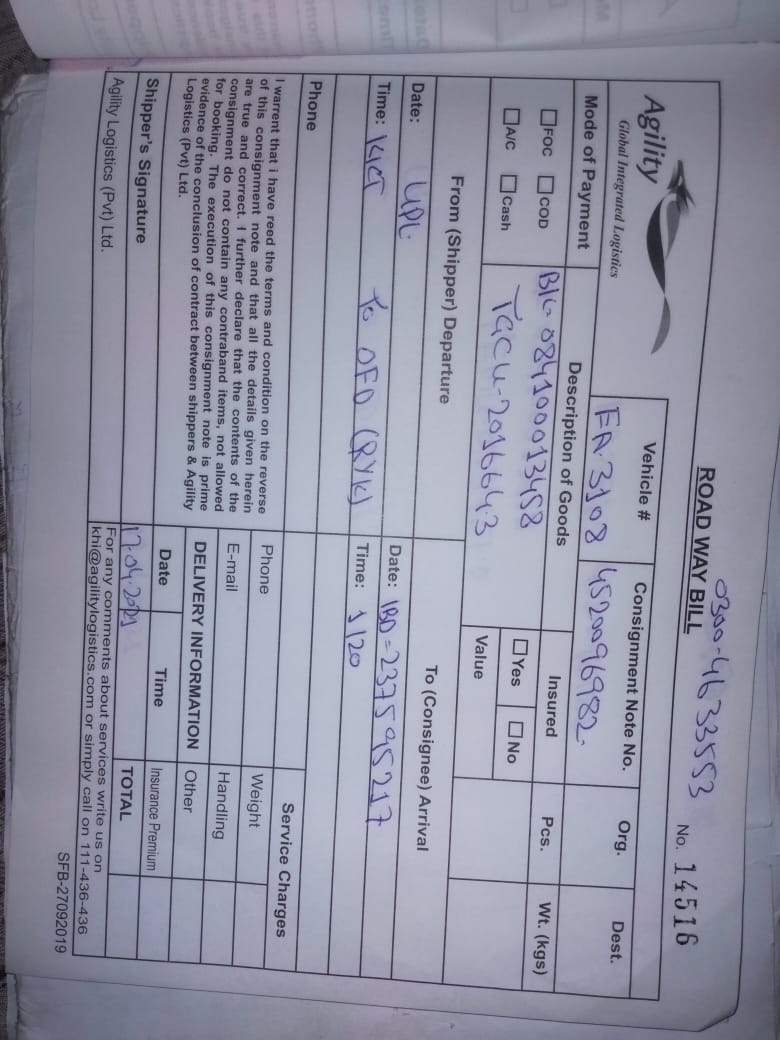 0300-4633553
ROAD WAY BILL
No. 14516
Agility
Global Integrated Logistics
Vehicle #
EA-3108
Consignment Note No.
4520096982.
Org.
Dest.
Mode of Payment
FOC COD
A/C Cash
Description of Goods
B/L- 084100013458
TGCU-2016643
Insured
Yes No
Value
Pcs.
Wt. (kgs)
From (Shipper) Departure
Date: UPL
Time: KICT To OFD (RYK)
Phone
To (Consignee) Arrival
Date: IBD=237595217
Time: 1/20
I warrent that i have reed the terms and condition on the reverse
of this consignment note and that all the details given herein
are true and correct. I further declare that the contents of the
consignment do not contain any contraband items, not allowed
for booking. The execution of this consignment note is prime
evidence of the conclusion of contract between shippers & Agility
Logistics (Pvt) Ltd.
Shipper's Signature
Agility Logistics (Pvt) Ltd.
Phone
E-mail
DELIVERY INFORMATION
Date Time
17.04.2021
Service Charges
Weight
Handling
Other
Insurance Premium
TOTAL
For any comments about services write us on
khi@agilitylogistics.com or simply call on 111-436-436
SFB-27092019